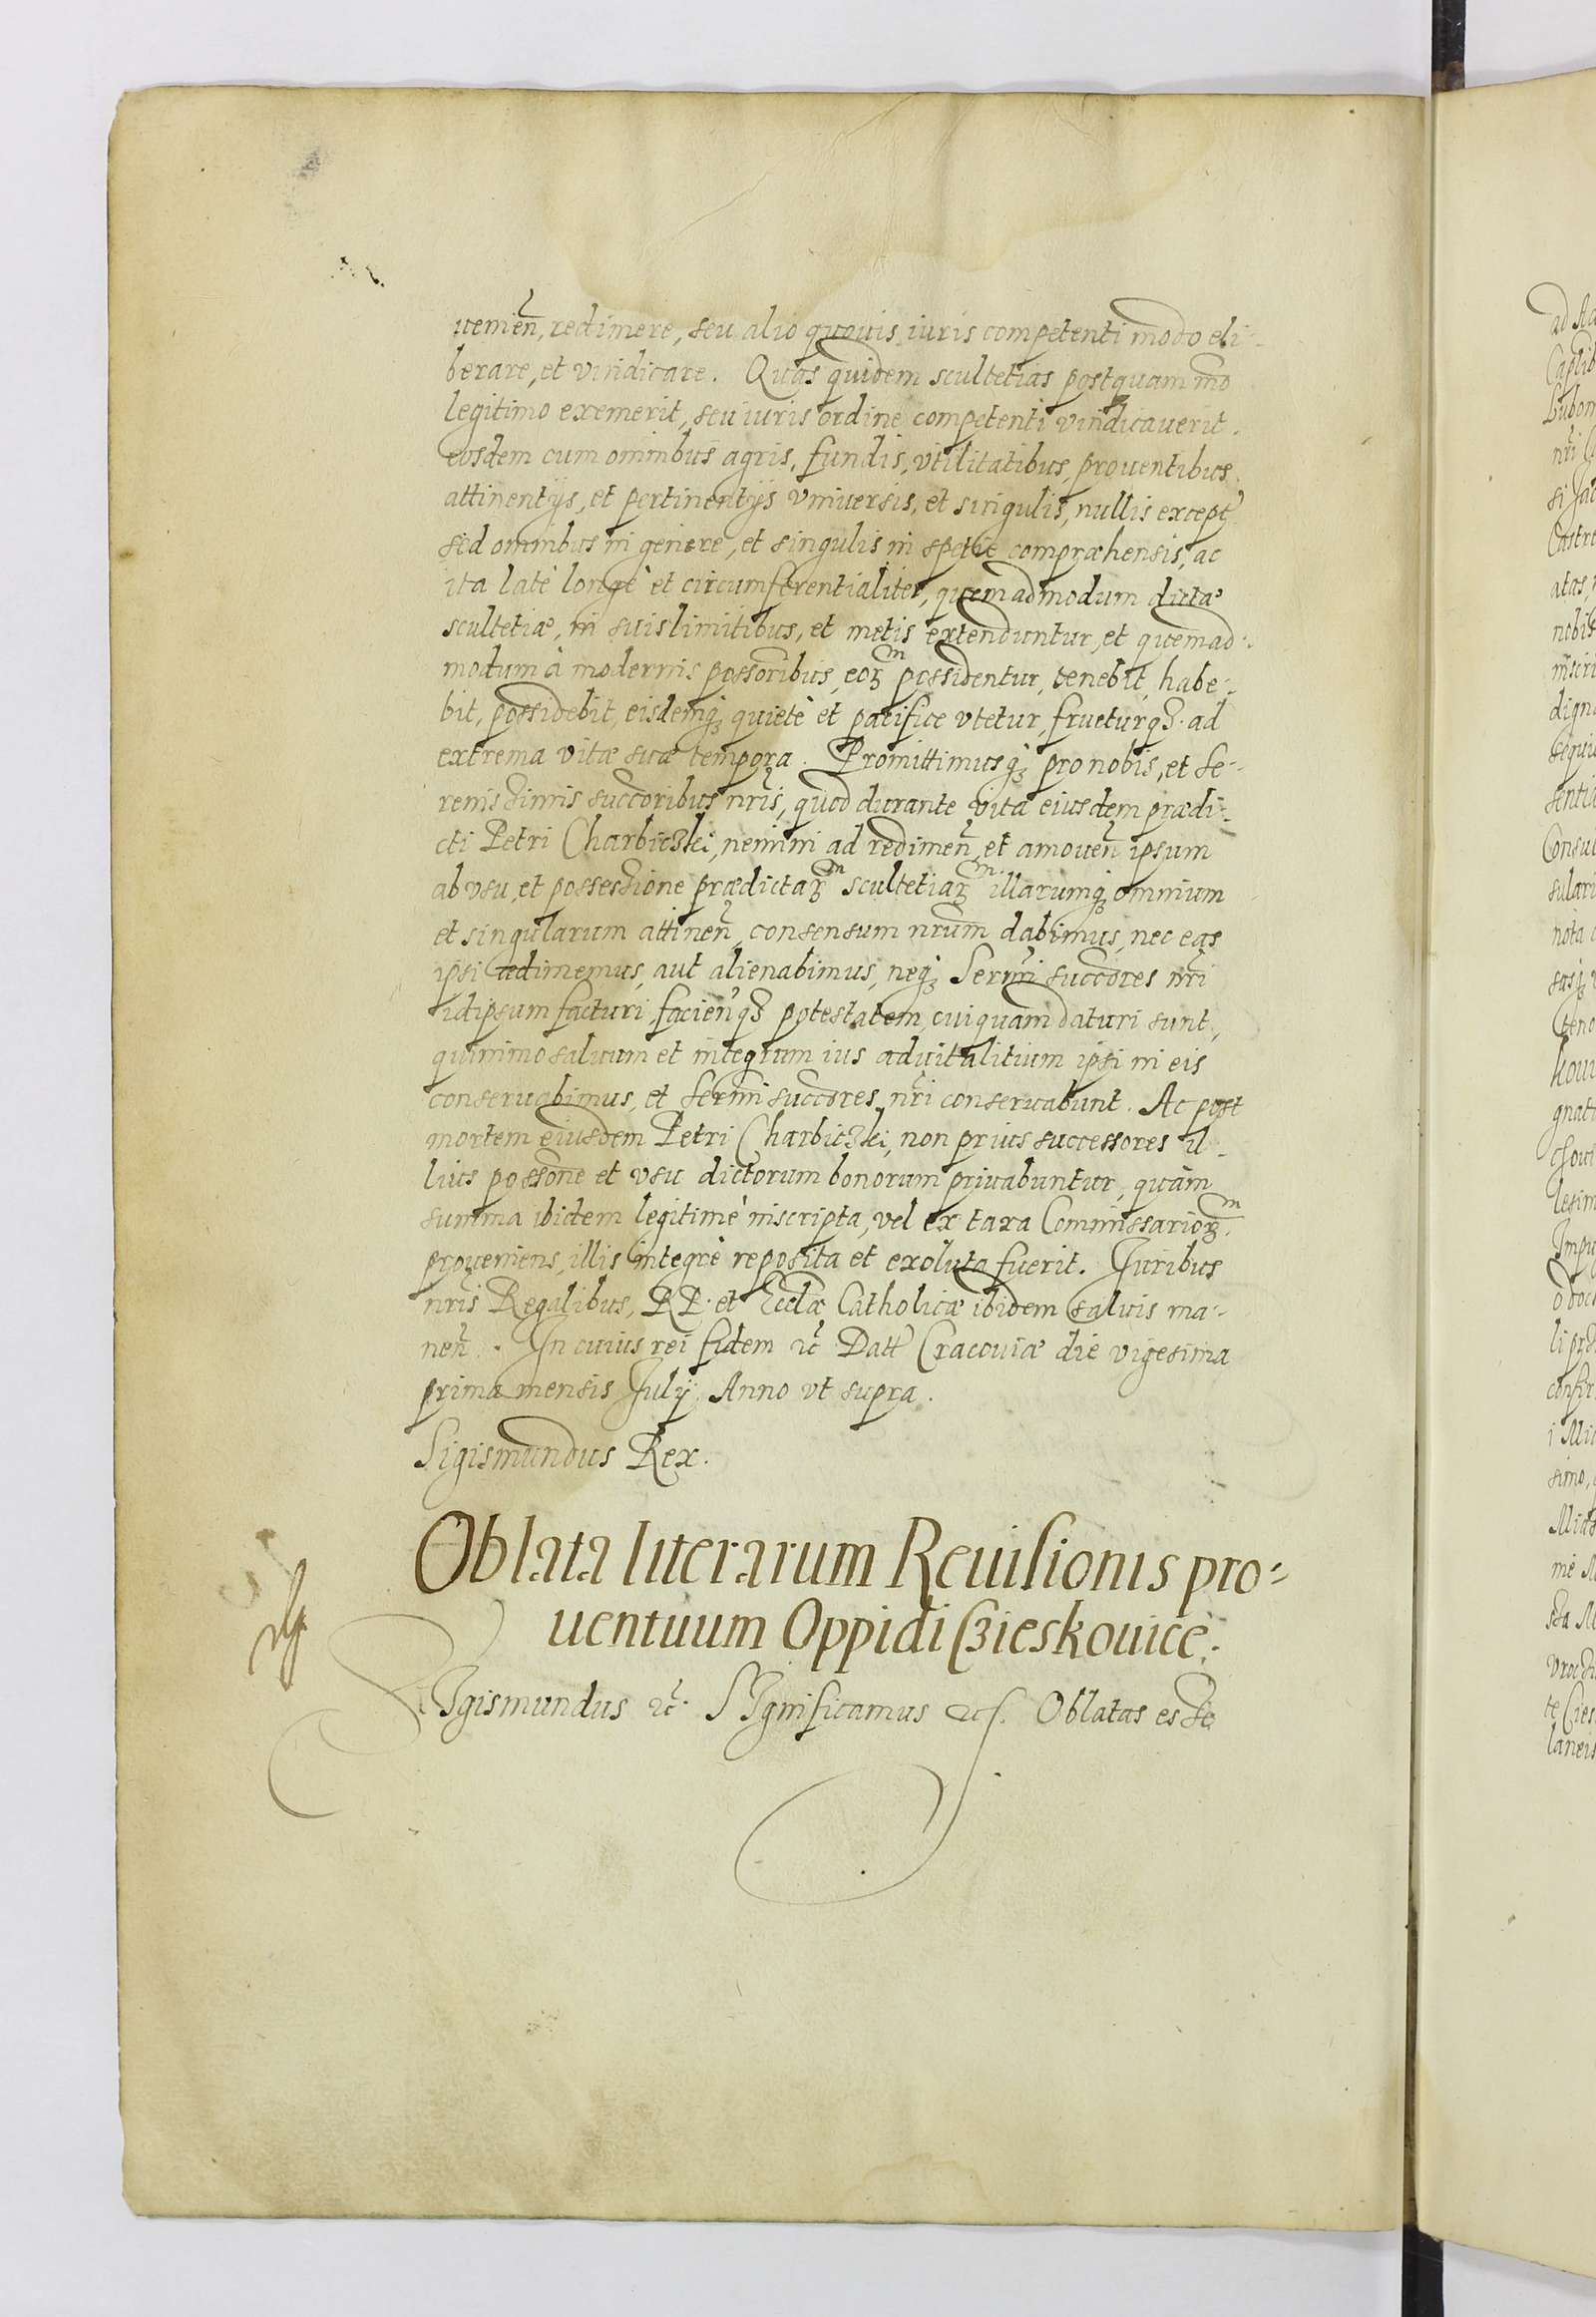 uenien̄, redimere, seu alio quouis iuris competenti modo eli-
berare, et vindicare. Quas quidem scultetias postquam mō
legitimo exemerit, seu iuris ordine competenti vindicauerit,
eosdem cum omnibus agris, fundis, vtilitatibus, prouentibus,
attinentijs, et pertinentijs vniuersis, et singulis, nullis except̄
sed omnibus in genere, et singulis in spetie compræhensis, ac
ita latè longè et circumferentialiter, quemadmodum dictæ
scultetiæ, in suis limitibus, et metis extenduntur, et quemad-
modum à modernis possoribus eoꝝm possidentur, tenebit, habe-
bit, possidebit, eisdemqꝫ quietè et pacifice vtetur, frueturqꝫ ad
extrema vitæ suæ tempora. Promittimusqꝫ pro nobis, et Se-
renissimis succoribus nr̄is, quod durante vita eiusdem prædi-
cti Petri Charbiczki, nemini ad redimen̄, et amouen̄ ipsum
ab vsu, et possessione prædictaꝝm scultetiaꝝm illarumqꝫ omnium
et singularum attinen̄, consensum nrūm dabimus, nec eas
ipsi adimemus, aut alienabimus, neqꝫ Serm̄i succores nr̄i
idipsum facturi, facien̄qꝫ potestatem cuiquam daturi sunt,
quinimo saluum et integrum ius aduitalitium ipsi in eis
conseruabimus, et Serm̄i succores nr̄i conseruabunt. Ac post
mortem eiusdem Petri Charbiczki, non prius successores il-
lius possōne et vsu dictorum bonorum priuabuntur, quàm
summa ibidem legitimè inscripta, vel ex taxa Commissarioꝝm
proueniens, illis integrè reposita et exoluta fuerit. Iuribus
nr̄is Regalibus, RP. et Eccl̄æ Catholicæ ibidem saluis ma-
nen̄. In cuius rei fidem ꝛc̄ Datt̄ Cracouiæ die vigesima
prima mensis July, Anno vt supra.
Sigismundus Rex.
Oblata literarum Reuisionis pro-
uentuum Oppidi Czieskouice.
SIgismundus ꝛc̄. SIgnificamus ꝛc. Oblatas esse